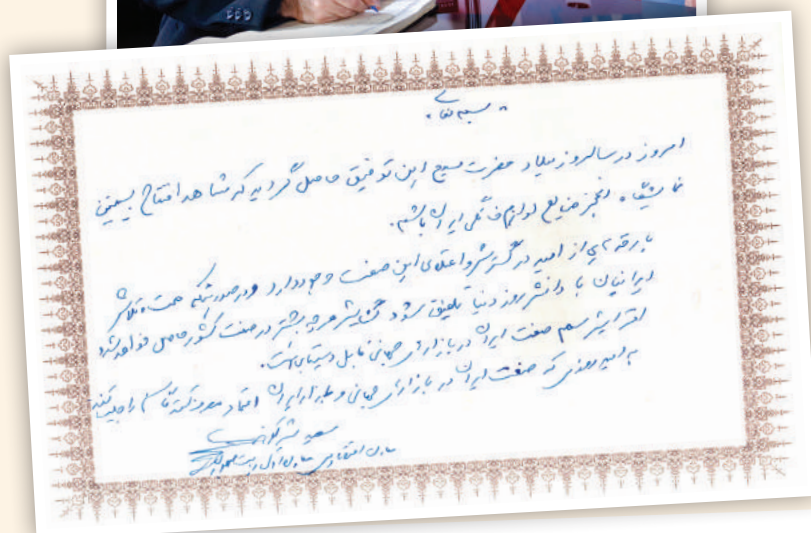 بسمه تعالی
امروز در سالروز میلاد حضرت مسیح این توفیق حاصل گردید که شاهد افتتاح بیستمین
نمایشگاه انجمن صنایع لوازم خانگی ایران باشم.
بارقه‌ای از امید در گسترش و اعتلای این صنعت وجود دارد و در صورتیکه همت و تلاش
ایرانیان با دانش روز دنیا تلفیق شود گشایش هر چه بیشتر در صنعت کشور حاصل خواهد شد
افزایش سهم صنعت ایران در بازارهای جهانی قابل دستیابی است.
به امید روزی که صنعت ایران در بازارهای جهانی و بازار ایران اعتماد مصرف کنندگان را جلب کند
سعید
معاون اقتصادی معاون اول